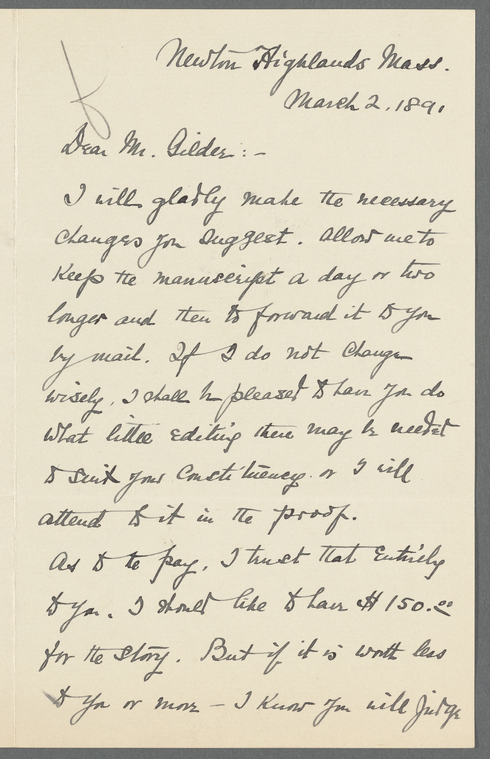 Newton Highlands Mass.
March 2, 1891
Dear Mr. Gilder:-
I will gladly make the necessary
changes you suggest. Allow me to
keep the manuscript a day or two
longer and then to forward it to you
by mail. If I do not change
wisely, I shall be pleased to have you do
what little editing there may be needed
to suit your constituency or I will
attend to it in the proof.
As to the pay, I trust that entirely
to you. I should like to have $150.00
for the story. But if it is worth less
to you or more - I know you will judge